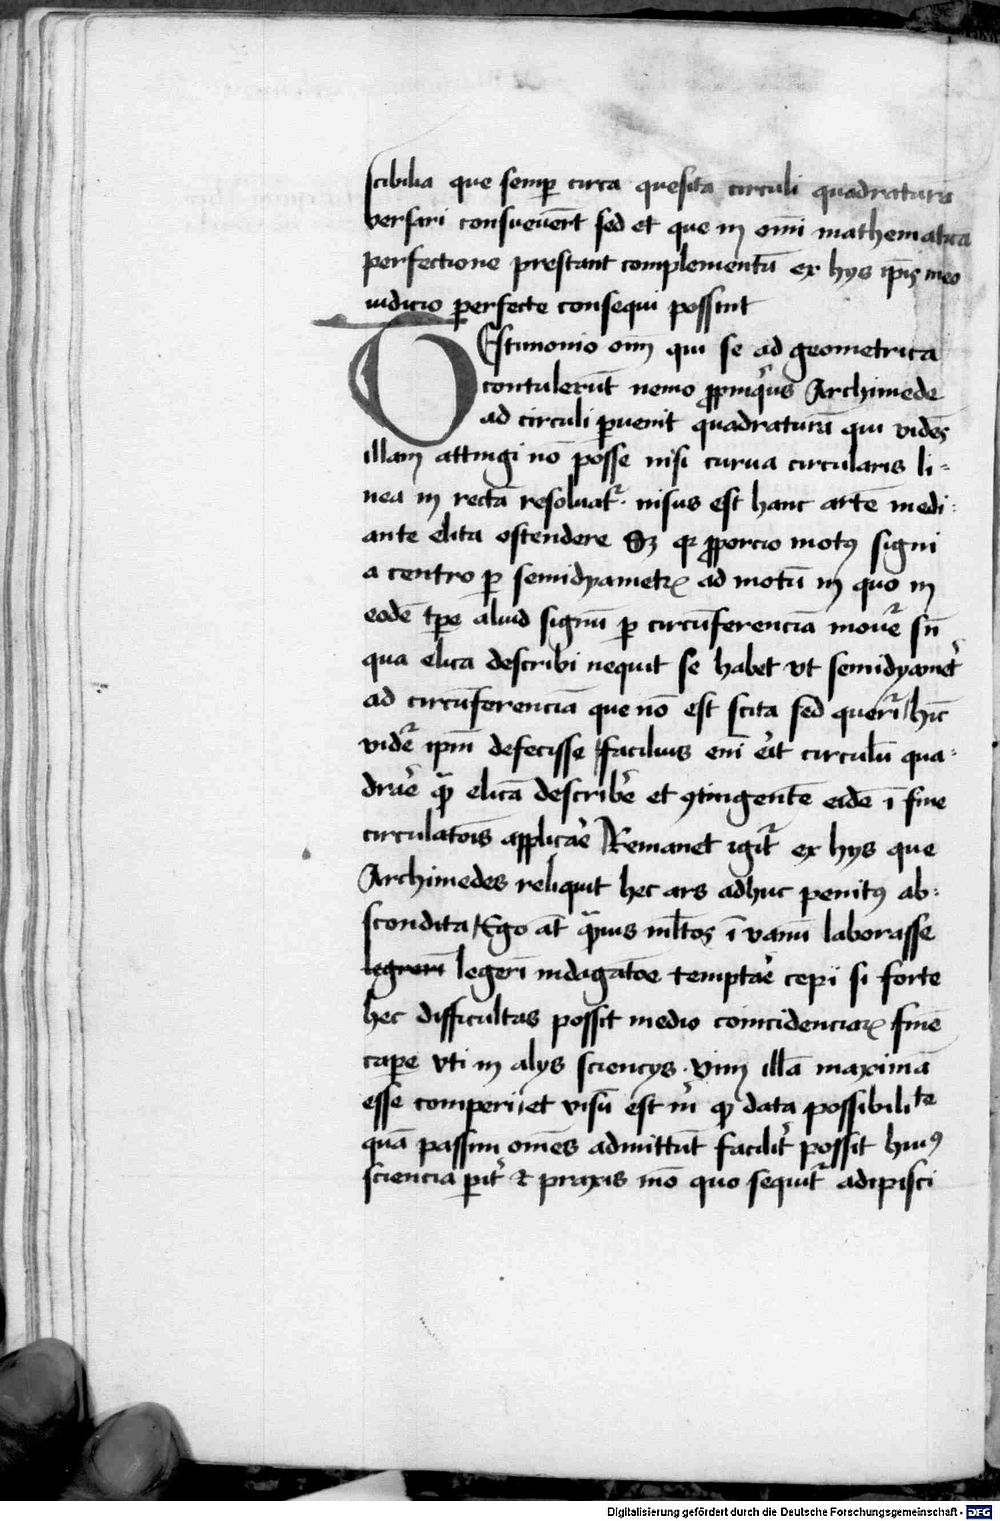 scibilia que semp̄ circa quesita circuli quadraturā
versari consueuer̄t sed et que in om̄i mathematica
perfectione prestant complementū ex hys ip̄is meo
iudicio perfecte consequi possint
TEstimonio om̄i qui se ad geometrica
contulerūt nemo ꝓpinq̓us Archimede
ad circuli ꝑuenit quadraturā qui vidēs
illam attingi nō posse nisi curua circularis li-
nea in rectā resoluat᷑. nisus est hanc artē medi-
ante elita ostendere Sꝫ qꝛ ꝓporcio motꝯ signi
a centro ꝑ semidyametꝝ ad motū in quo in
eodē tꝑe aliud signū ꝑ circūferenciā mouet᷑ sn̄
qua elica describi nequit se habet vt semidyamet̓
ad circūferenciā que nō est scita sed querit᷑ / hic̄
videt᷑ ip̄m defecisse / facilius em̄ e̓it circulū qua-
drar̓e qᷓ elicā describ̓e et ꝯtingentē eidē ī fine
circulatōis applicar̓e Remanet igit᷑ ex hys que
Archimedes reliquit hec ars adhuc penitꝯ ab-
scondita / Ego at̄ qᷓuis ml̄tos ī vanū laborasse
legrerī legerī indagatōe temptar̓e cepi si forte
hec difficultas possit medio coincidenciaꝝ finē
caꝑe vti in alys sciencys. vim illā maximā
esse comperi / et visū est m̓ qꝙ data possibilite
quā passim om̄es admittūt facilit̓ possit huiꝯ
sciencia ꝑit̓ & praxis mō quo sequit᷑ adipisci
Digitalisierung gefördert durch die Deutsche Forschungsgemeinschaft - DFG